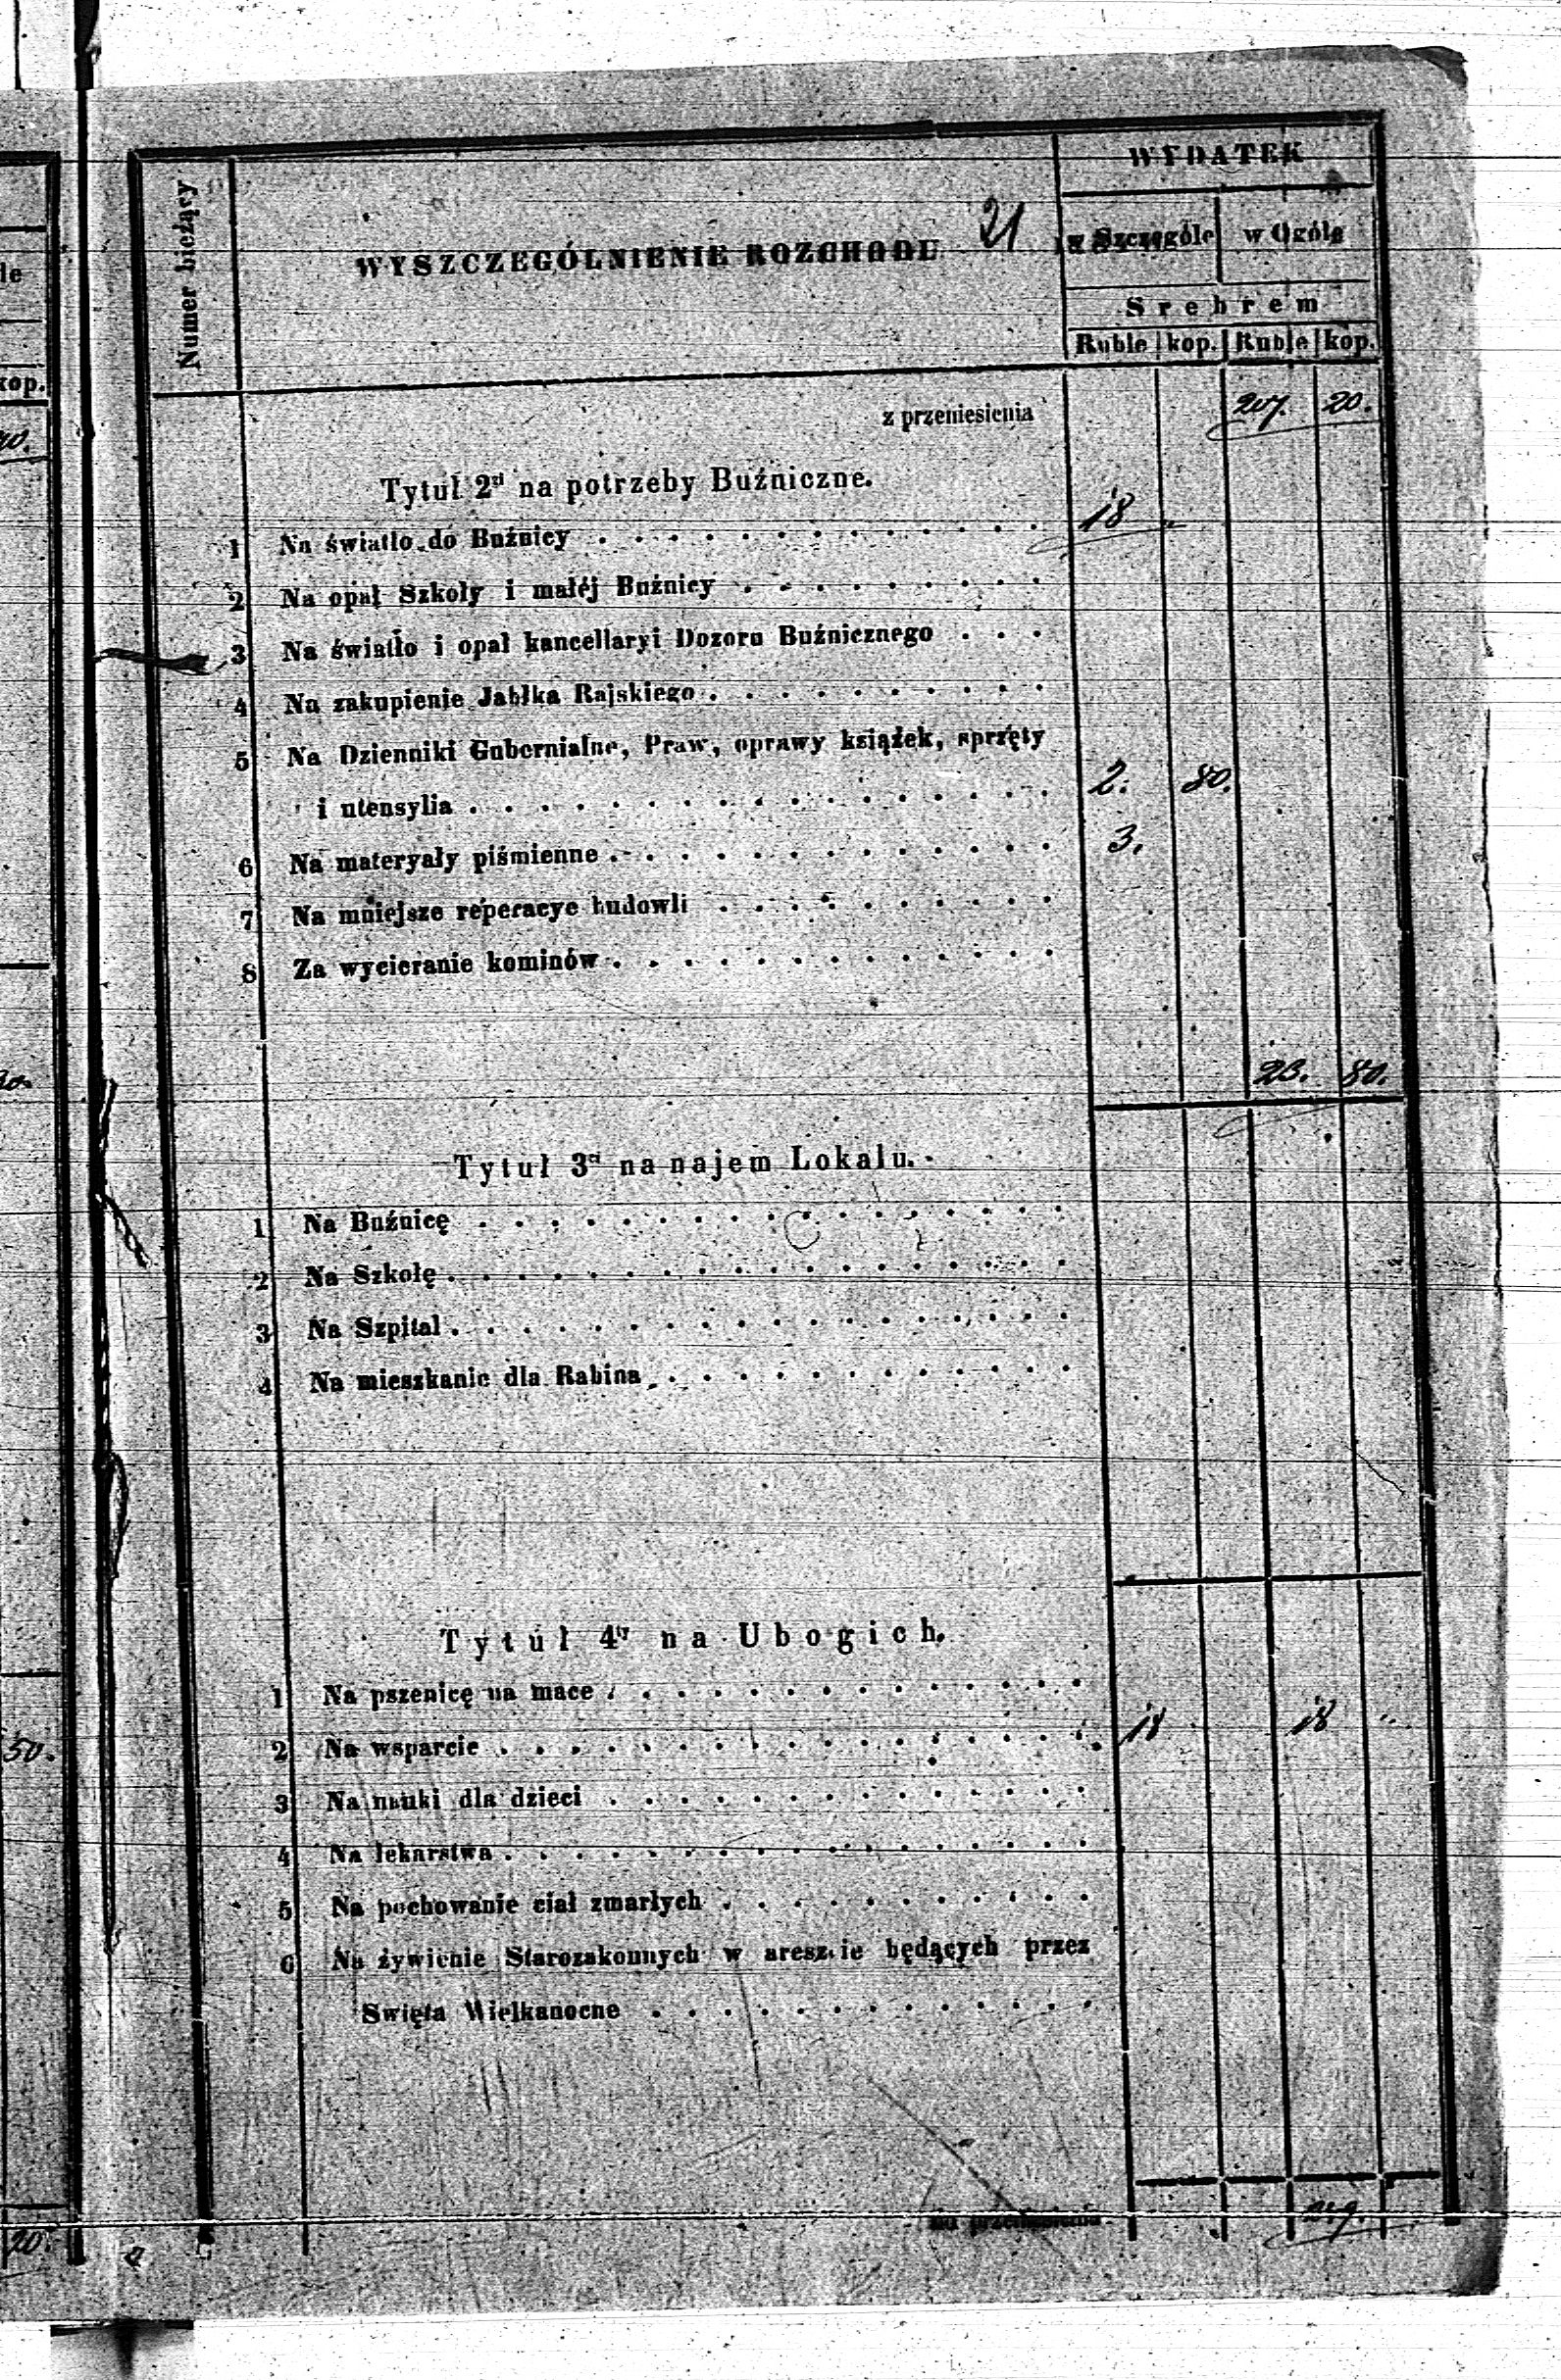 le
kop.
Numer bieżący
WYSZCZEGÓLNIENIE ROZCHODU
21
WYDATEK
w Szczególe
w Ogóle
Srebrem
Ruble kop. Ruble kop.
z przeniesienia 207. 20.
Tytuł 2gi na potrzeby Buźniczne.
1 Na światło do Buźnicy . . . . . . . . . . . . . 18
2 Na opał Szkoły i małéj Buźnicy . . . . . . . . .
3 Na światło i opał kancellaryi Dozoru Buźnicznego . . .
4 Na zakupienie Jabłka Rajskiego . . . . . . . . . .
5 Na Dzienniki Gubernialne, Praw, oprawy książek, sprzęty
i utensylia . . . . . . . . . . . . . . . . . 2. 80.
6 Na materyały piśmienne . . . . . . . . . . . . . 3.
7 Na mniejsze reperacye budowli . . . . . . . . . .
8 Za wycieranie kominów . . . . . . . . . . . . .
23. 80.
Tytuł 3ci na najem Lokalu.
1 Na Buźnicę . . . . . . . . . . . . . . . . .
2 Na Szkołę . . . . . . . . . . . . . . . . . .
3 Na Szpital . . . . . . . . . . . . . . . . . .
4 Na mieszkanie dla Rabina . . . . . . . . . . . .
Tytuł 4ty na Ubogich.
1 Na pszenicę na mace . . . . . . . . . . . . . .
2 Na wsparcie . . . . . . . . . . . . . . . . . 18 18
3 Na nauki dla dzieci . . . . . . . . . . . . . .
4 Na lekarstwa . . . . . . . . . . . . . . . . .
5 Na pochowanie ciał zmarłych . . . . . . . . . . .
6 Na żywienie Starozakonnych w areszcie będących przez
Święta Wielkanocne . . . . . . . . . . . . .
do przeniesienia 249.
50.
20.